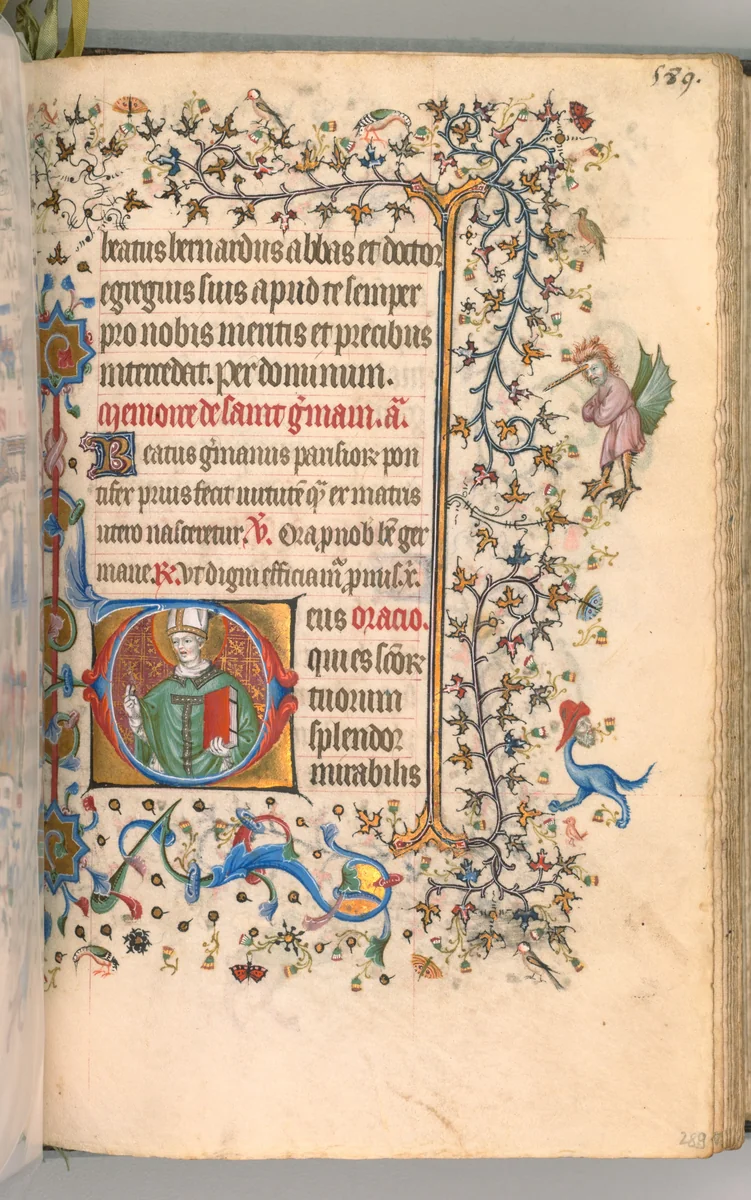 589.
beatus bernardus abbas et doctor
egregius suis apud te semper
pro nobis meritis et precibus
intercedat. Per dominum.
Memoire de saint ḡmain. a͞.
Beatus ḡmanus parisioꝝ pon
tifex prius fecit uirtutē q̄ ex matris
utero nasceretur. V̄. Ora p nob bē ger
mane. R̄. Vt digni efficiam̄ p̄mis. x̄.
eus oracio.
qui es sc̄oꝝ
tuorum
splendor
mirabilis
289